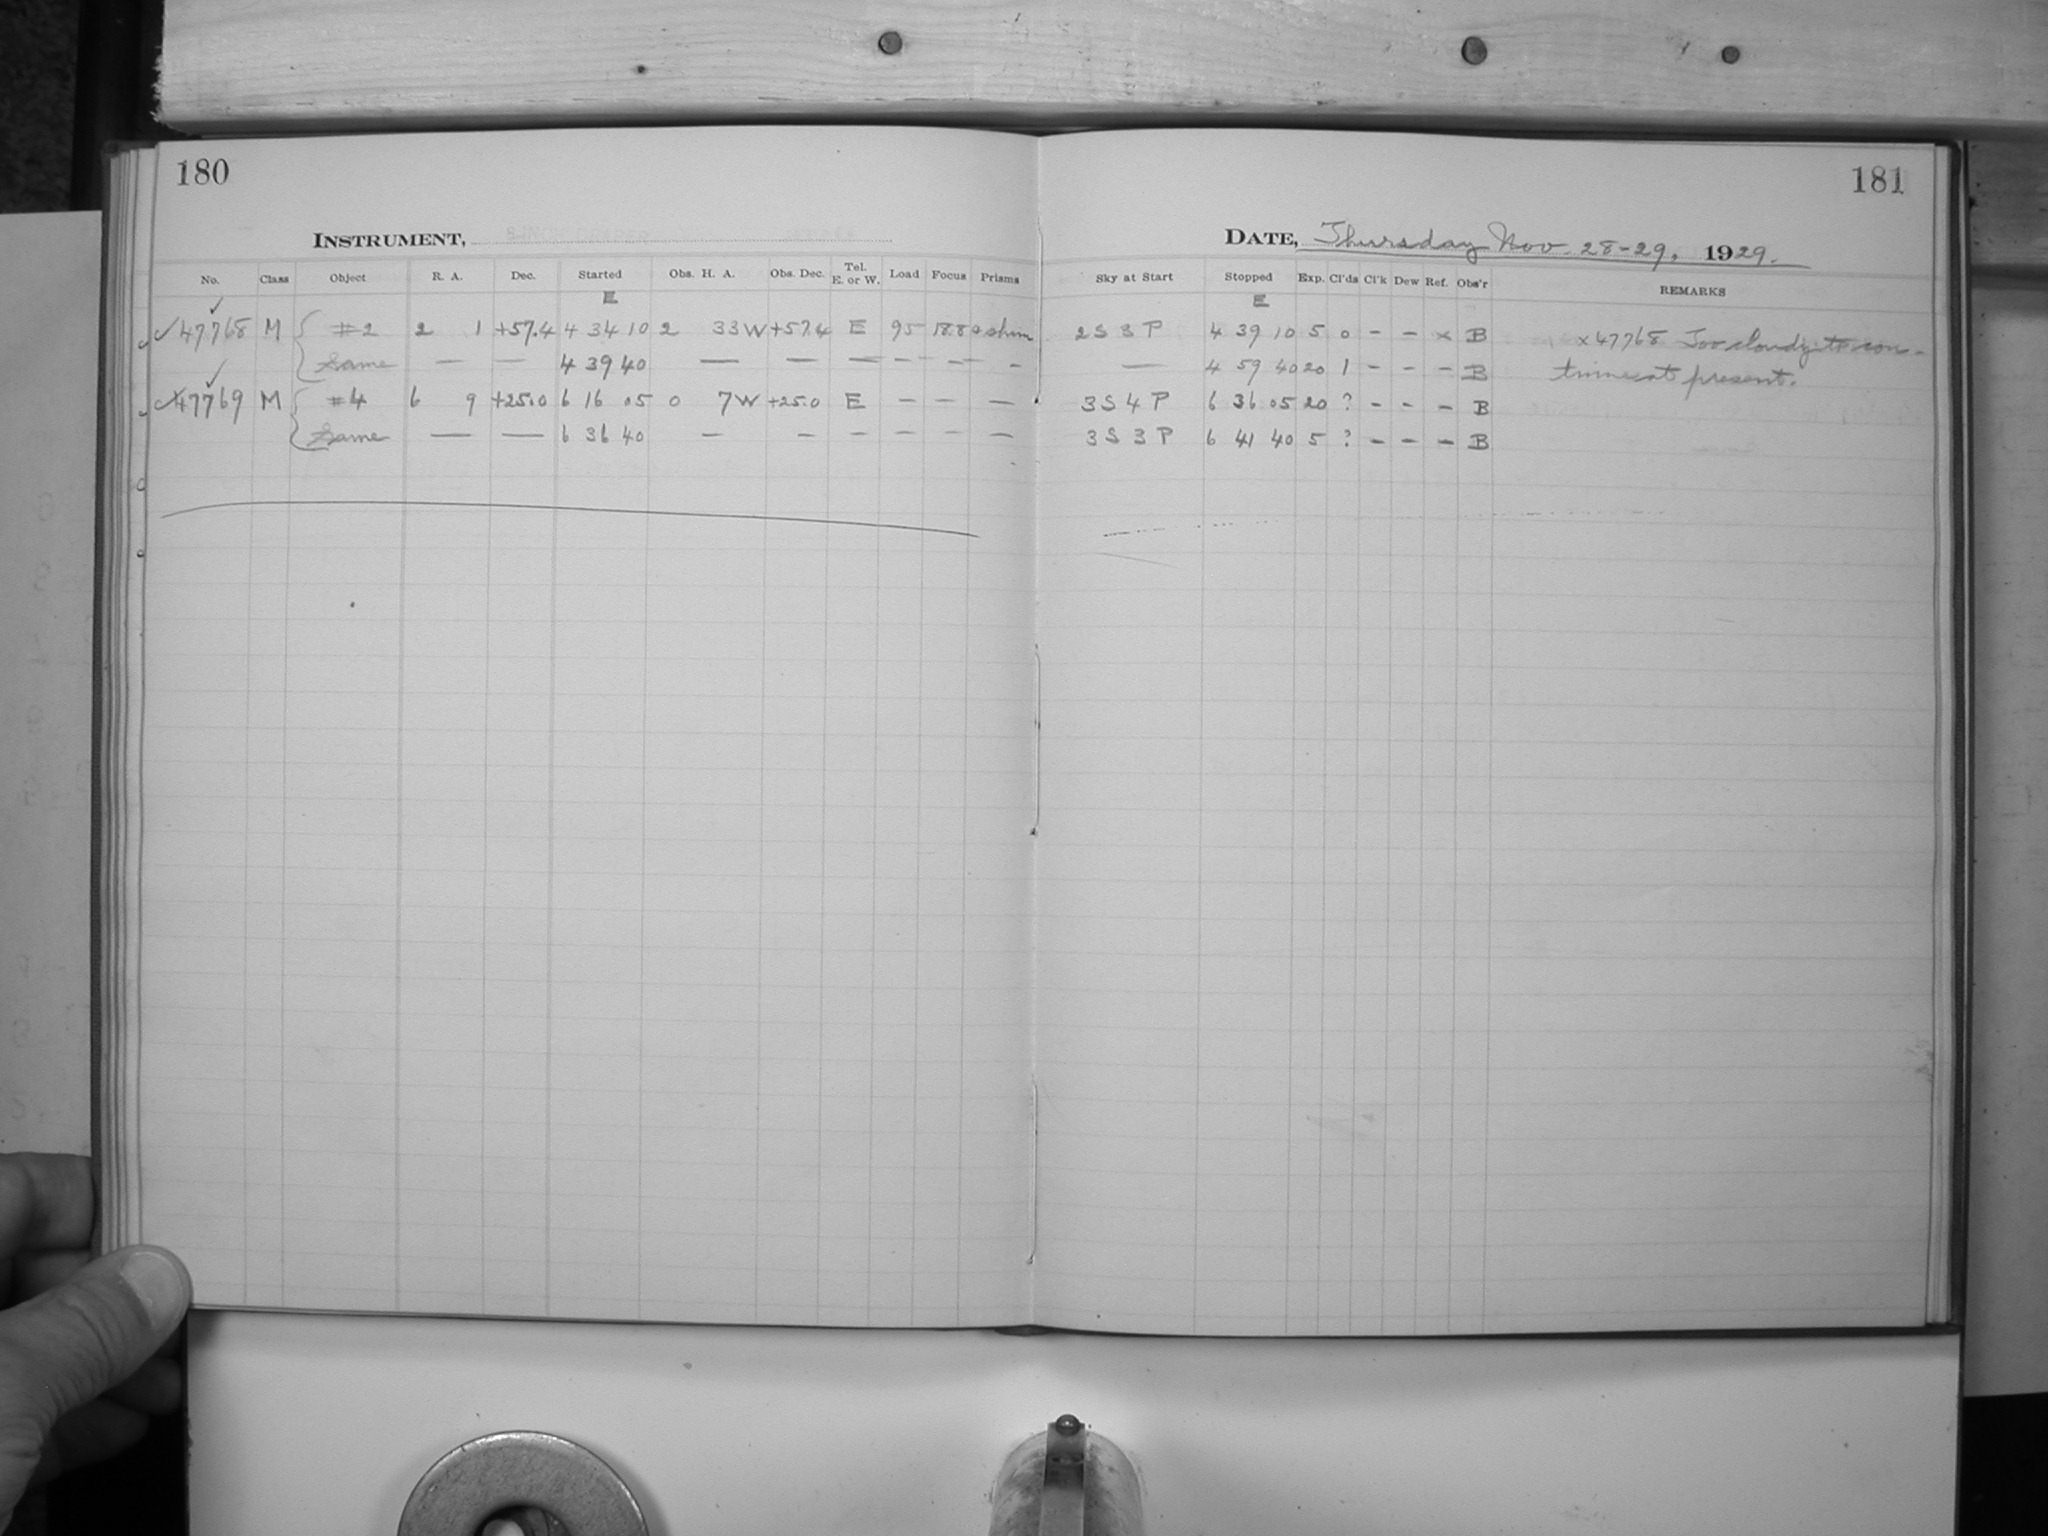 180
181
INSTRUMENT,
DATE, Thursday Nov. 28-29, 1929.
No. Class Object R. A. Dec. Started Obs. H. A. Obs. Dec. Tel. E. or W. Load Focus Prisms Sky at Start Stopped Exp. Cl'ds Cl'k Dew Ref. Obs'r REMARKS
E E
✓47768 M #2 2 1 +57.4 4 34 10 2 33W +57.4 E 95 18.8 2S 3P 4 39 10 5 0 – – × B ×47768 Too cloudy to con-
Same — — 4 39 40 — — — – – – — 4 59 40 20 1 – – – B tinue at present.
47769 M #4 6 9 +25.0 6 16 05 0 7W +25.0 E – – – 3S 4P 6 36 05 20 ? – – – B
Same — — 6 36 40 – – – – – – 3S 3P 6 41 40 5 ? – – – B